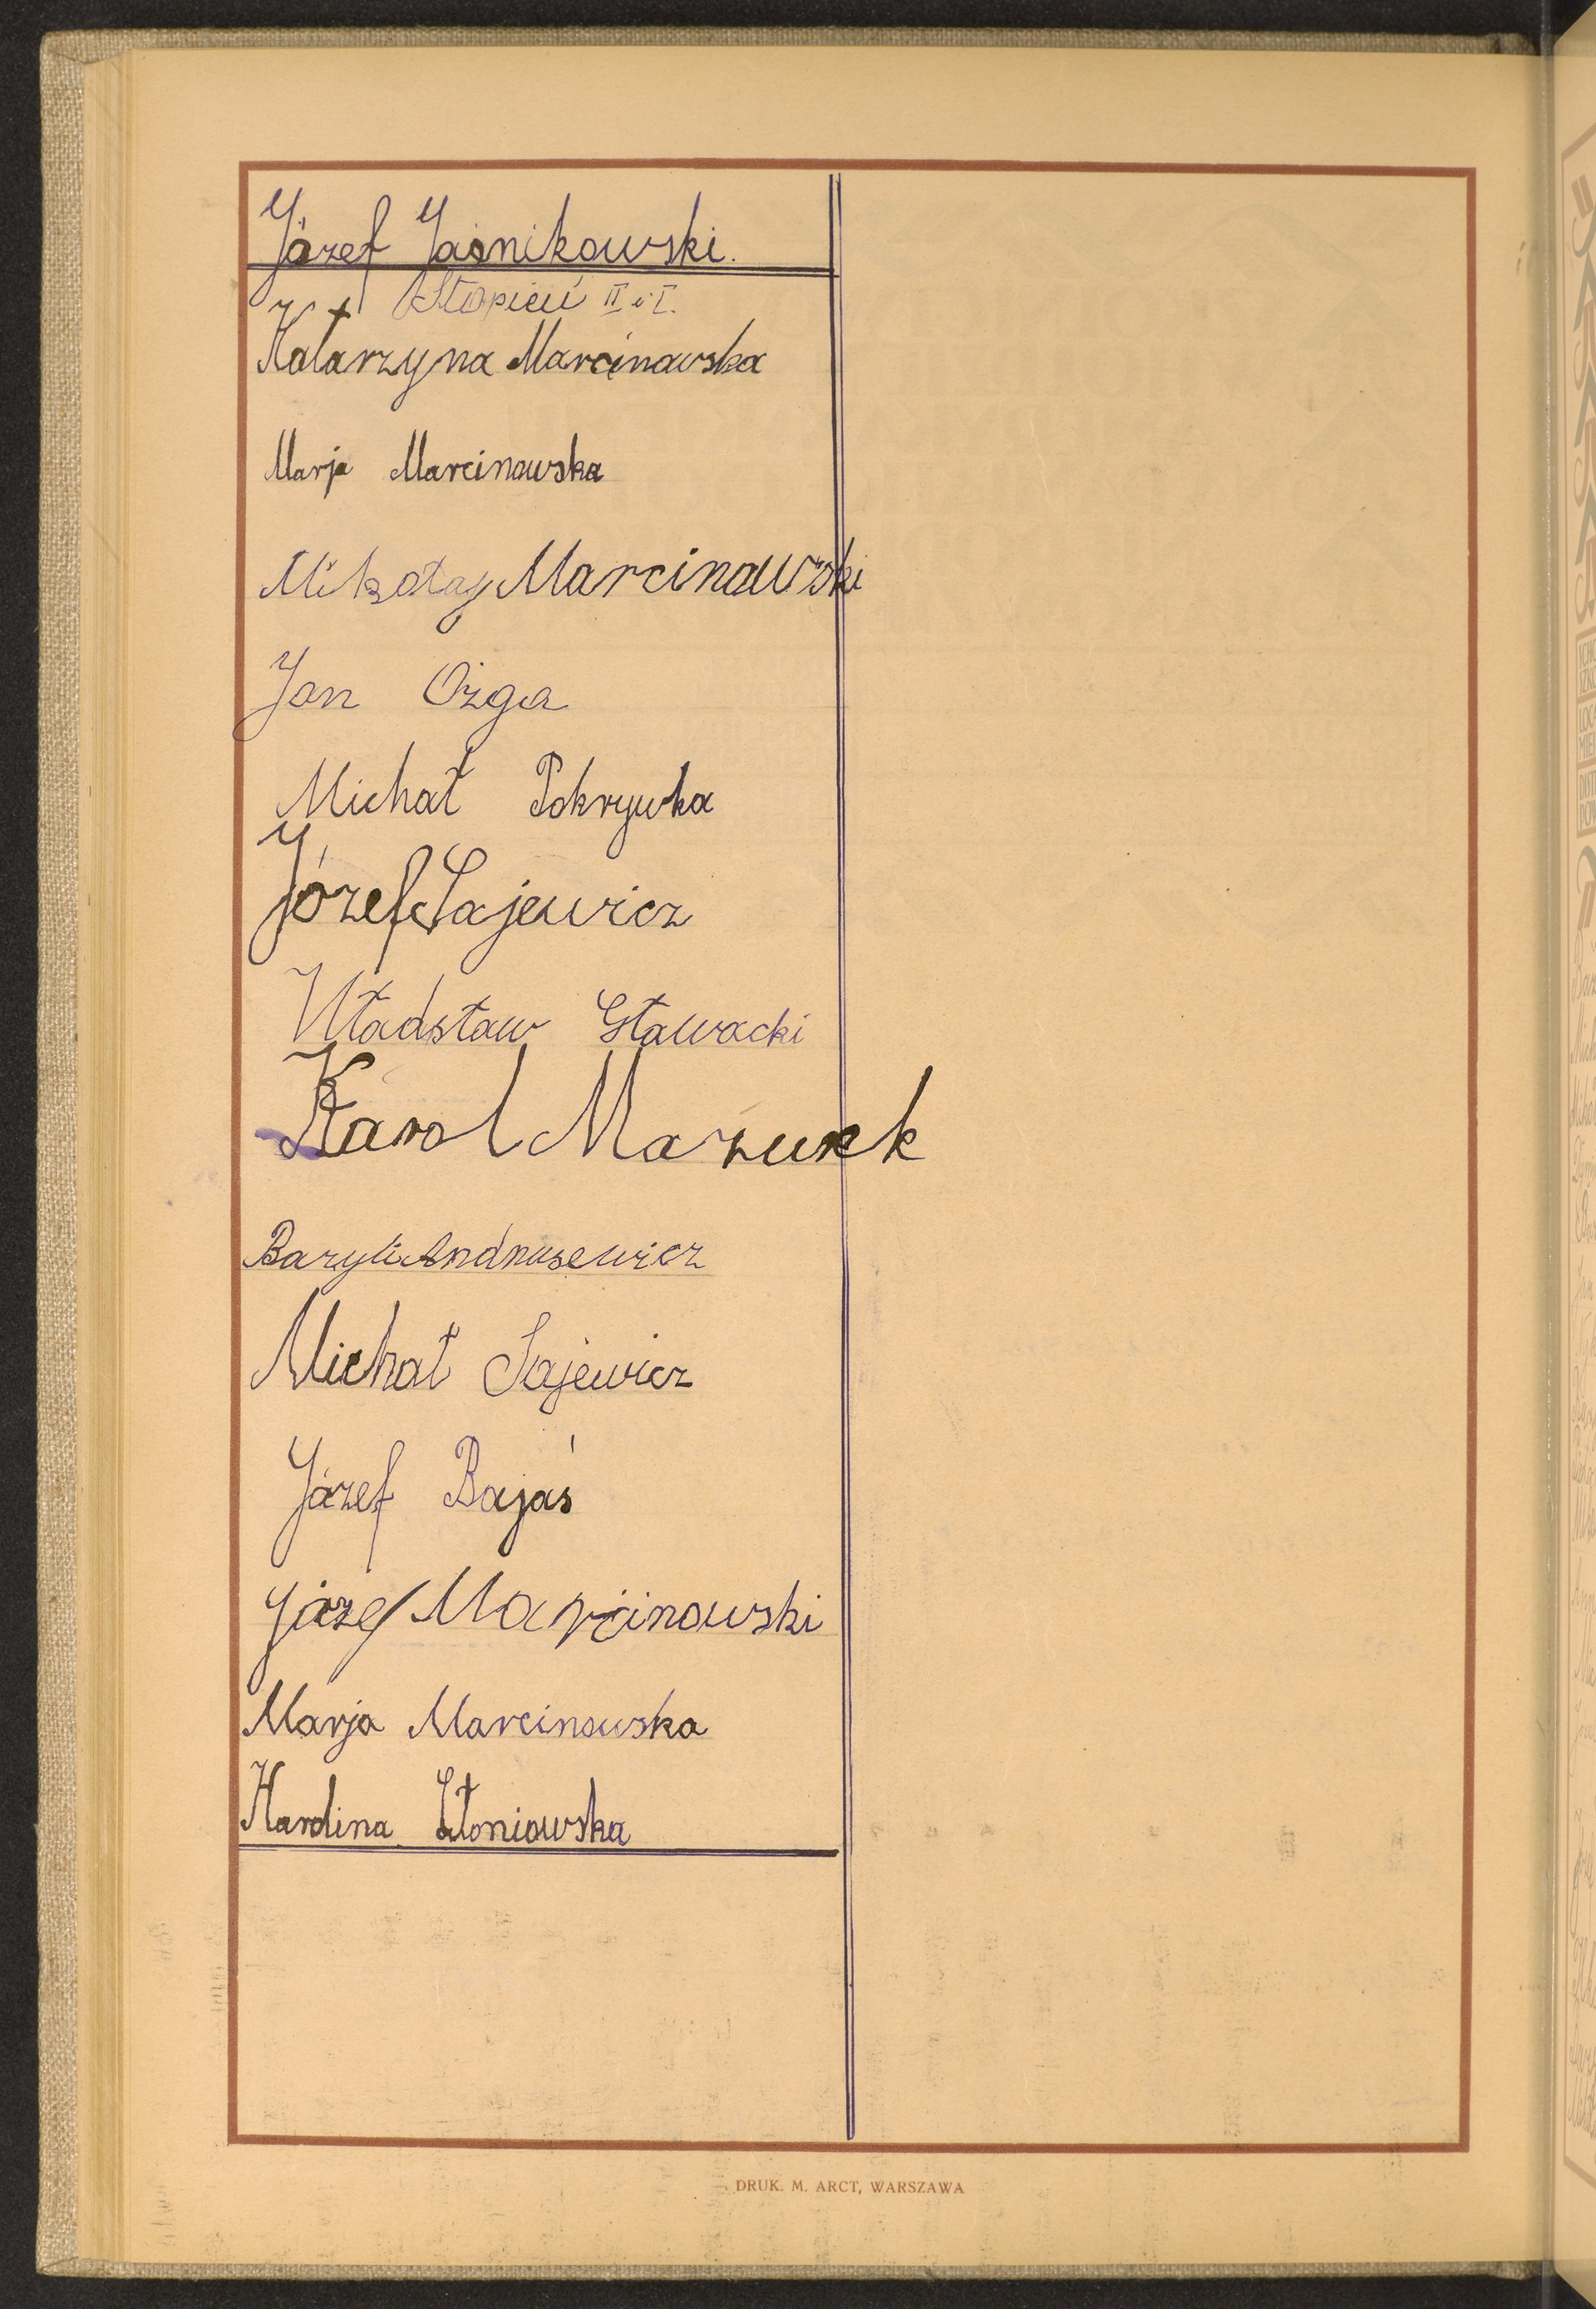 Józef Jaśnikowski.
Stopień II i I.
Katarzyna Marcinowska
Marja Marcinowska
Mikołaj Marcinowski
Jan Ożga
Michał Pokrywka
Józef Sajewicz
Władsław Gławacki
Karol Mazurek
Bazyli Andrusewicz
Michał Sajewicz
Józef Bajaś
Józef Marcinowski
Marja Marcinowska
Karolina
DRUK. M. ARCT, WARSZAWA